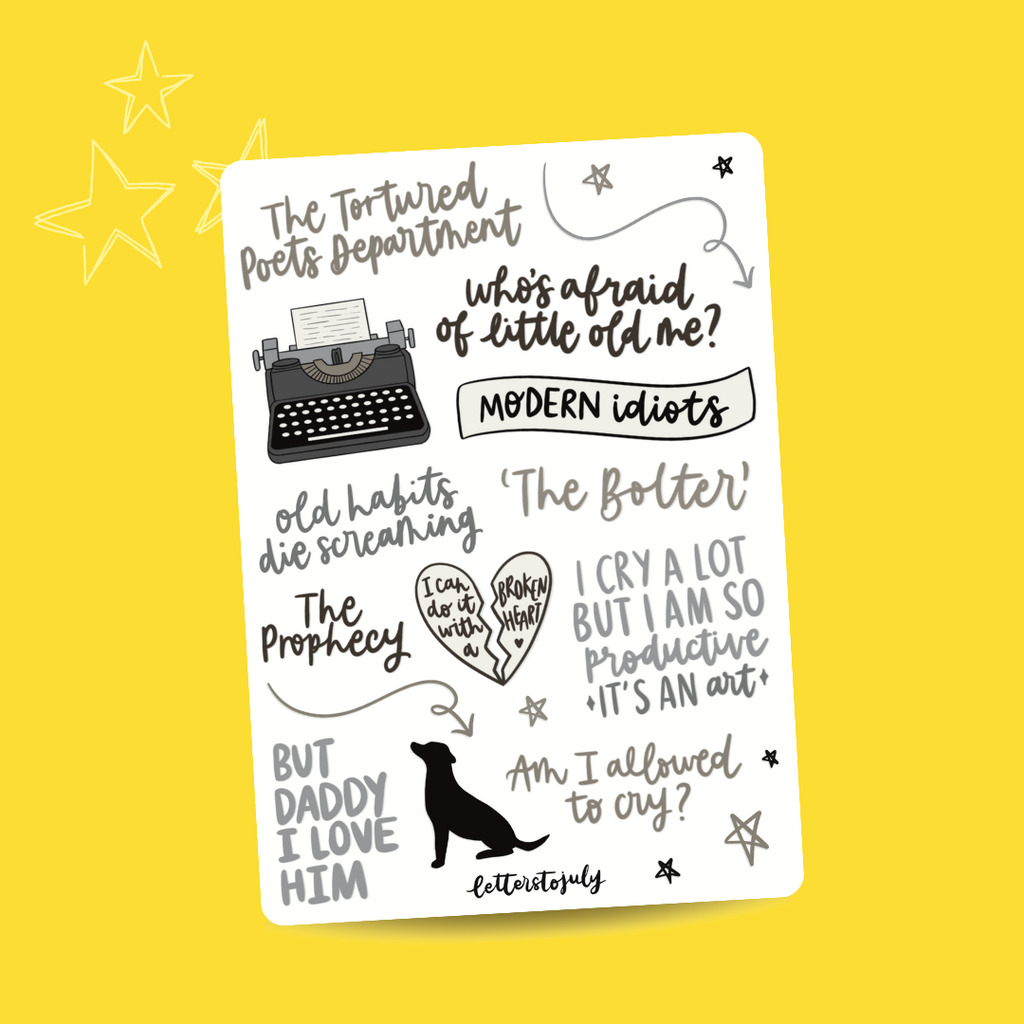 The Tortured
Poets Department
who's afraid
of little old me?
MODERN idiots
old habits
die screaming
'The Bolter'
The
Prophecy
I can
do it
with
a
BROKEN
HEART
I CRY A LOT
BUT I AM SO
productive
IT'S AN art
BUT
DADDY
I LOVE
HIM
Am I allowed
to cry?
letterstojuly